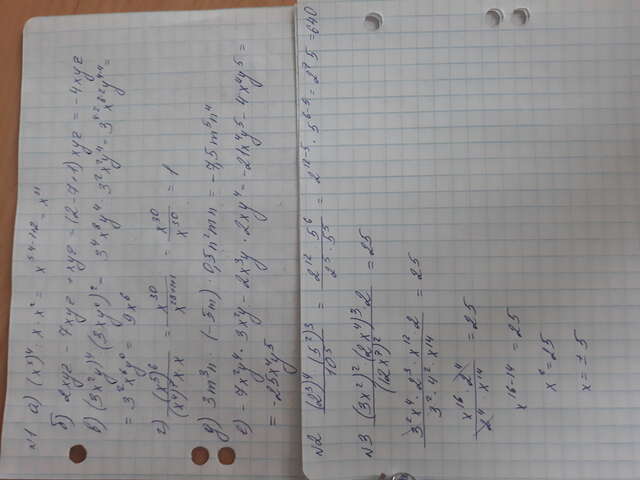 №1 а) (x³)⁴ : x · x² = x^(3·4-1+2) = x¹¹
б) 2xyz - 7xyz + xyz = (2-7+1)xyz = -4xyz
в) (3x²y)⁴ : (3xy²)² = 3⁴x⁸y⁴ : 3²x²y⁴ = 3⁴⁻²x⁸⁻²y⁴⁻⁴ =
= 3²x⁶y⁰ = 9x⁶
г) (x⁵)⁶ / (x⁴)⁷ x · x = x³⁰ / x²⁸⁺¹⁺¹ = x³⁰ / x³⁰ = 1
д) 3m³n · (-5m) · 0,5n²mn = -7,5m⁵n⁴
е) -7x²y⁴ · 3x²y - 2x³y · 2xy⁴ = -21x⁴y⁵ - 4x⁴y⁵ =
= -25x⁴y⁵
№2 (2³)⁴ · (5²)³ / 10⁵ = 2¹² 5⁶ / 2⁵ · 5⁵ = 2¹²⁻⁵ · 5⁶⁻⁵ = 2⁷ 5 = 640
№3 (3x²)² (2x⁴)³ 2 / (12x⁷)² = 25
3²x⁴ · 2³ · x¹² · 2 / 3² · 4² · x¹⁴ = 25
x¹⁶ · 2⁴ / 2⁴ x¹⁴ = 25
x¹⁶⁻¹⁴ = 25
x² = 25
x = ± 5